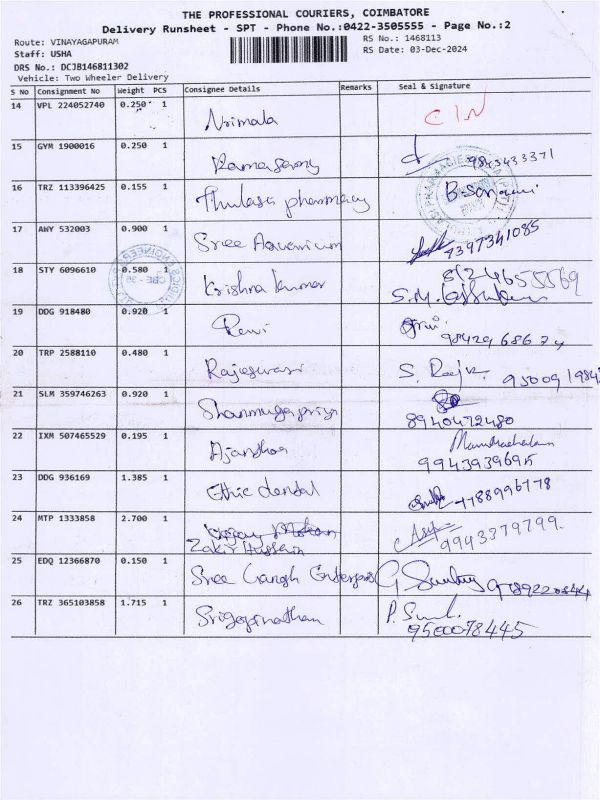 THE PROFESSIONAL COURIERS, COIMBATORE
Delivery Runsheet - SPT - Phone No.:0422-3505555 - Page No.:2
Route: VINAYAGAPURAM
RS No.: 1468113
Staff: USHA
RS Date: 03-Dec-2024
DRS No.: DCJB146811302
Vehicle: Two Wheeler Delivery
S No Consignment No Weight PCS Consignee Details Remarks Seal & Signature
14 VPL 224052740 0.250 1 Nrimala CIN
15 GYM 1900016 0.250 1 Ramasamy 9843433371
16 TRZ 113396425 0.155 1 Thulasi pharmacy
17 AWY 532003 0.900 1 Sree Aquarium 7397341085
18 STY 6096610 0.580 1 Krishna kumar
19 DDG 918480 0.920 1 Ravi 9842968674
20 TRP 2588110 0.480 1 Rajeswari S.
21 SLM 359746263 0.920 1 Shanmugapriya 8940472480
22 IXM 507465529 0.195 1 Ajantha 9943939695
23 DDG 936169 1.385 1 Ethic dental 9788996778
24 MTP 1333858 2.700 1 Zakir Hussain 9943379799
25 EDQ 12366870 0.150 1 Sree Enterprises G
26 TRZ 365103858 1.715 1 P. 9500078445